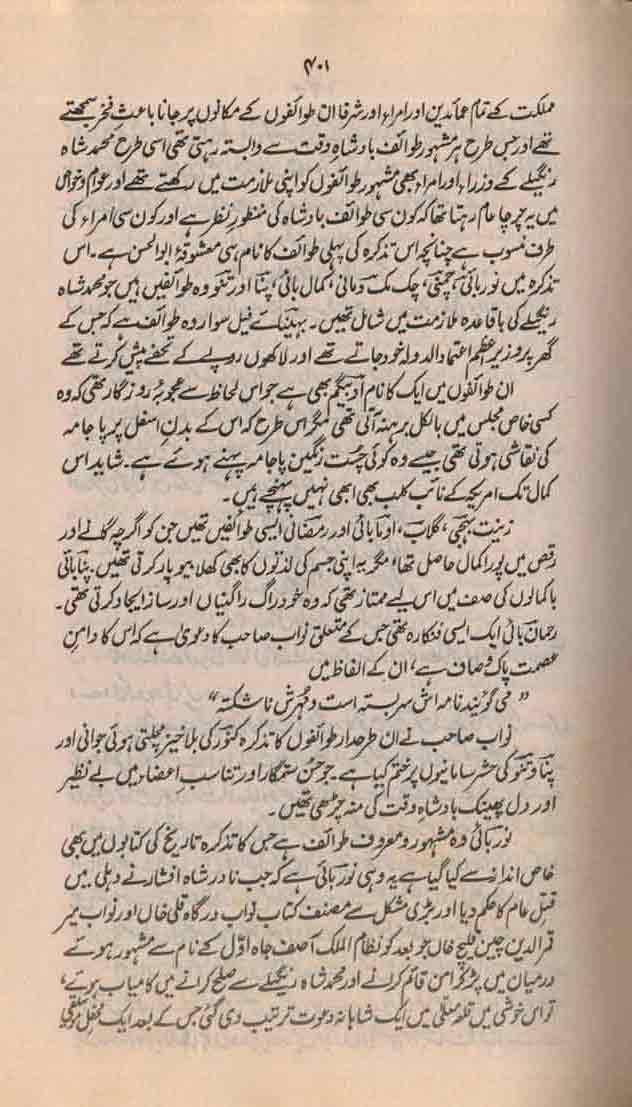 ۴۰۱
مملکت کے تمام عمائدین اور امراء اور شرفا ان طوائفوں کے مکانوں پر جانا باعثِ فخر سمجھتے
تھے اور جس طرح ہر مشہور طوائف بادشاہِ وقت سے وابستہ رہتی تھی اسی طرح محمد شاہ
رنگیلے کے وزراء اور امراء بھی مشہور طوائفوں کو اپنی ملازمت میں رکھتے تھے اور عوام و خواص
میں یہ چرچا عام رہتا تھا کہ کون سی طوائف بادشاہ کی منظورِ نظر ہے اور کون سی امراء کی
طرف منسوب ہے چنانچہ اس تذکرہ کی پہلی طوائف کا نام ہی معشوقۂ ابوالحسن ہے۔ اس
تذکرہ میں نور بائی، چمنی، چک مک دھانی، کمال بائی، پنا اور تنو وہ طوائفیں ہیں جو محمد شاہ
رنگیلے کی باقاعدہ ملازمت میں شامل تھیں۔ بہنیائے فیل سوار وہ طوائف ہے کہ جس کے
گھر پر وزیرِ عظم اعتماد الدولہ خود جاتے تھے اور لاکھوں روپے کے تحفے پیش کرتے تھے
ان طوائفوں میں ایک کا نام اَدبیگم بھی ہے جو اس لحاظ سے عجوبۂ روزگار تھی کہ وہ
کسی خاص مجلس میں بالکل برہنہ آتی تھی مگر اس طرح کہ اس کے بدنِ اسفل پر پاجامہ
کی نقاشی ہوتی تھی جیسے وہ کوئی چست رنگین پاجامہ پہنے ہوئے ہے۔ شاید اس
کمال تک امریکہ کے نائٹ کلب بھی ابھی نہیں پہنچے ہیں۔
زینت پہجی، گلاب، اوما بائی اور رمضانی ایسی طوائفیں تھیں جن کو اگرچہ گانے اور
رقص میں پورا کمال حاصل تھا، مگر یہ اپنی جسم کی لذتوں کا بھی کھلا بیوپار کرتی تھیں۔ پنا بائی
باکمالوں کی صف میں اس لیے ممتاز تھی کہ وہ خود راگ راگنیاں اور ساز ایجاد کرتی تھی۔
رحمان بائی ایک ایسی فنکارہ تھی جس کے متعلق نواب صاحب کا دعویٰ ہے کہ اس کا دامنِ
عصمت پاک و صاف ہے، ان کے الفاظ میں
"می گویند نامہ اش سربستہ است و مُہرش ناشکستہ"
نواب صاحب نے ان طرحدار طوائفوں کا تذکرہ کنور کی بلاخیز مچلتی ہوئی جوانی اور
پنا و تنو کی حشر سامانیوں پر ختم کیا ہے۔ جو حسنِ ستمگار اور تناسبِ اعضاء میں بے نظیر
اور دل پھینک بادشاہِ وقت کی منہ چڑھی تھیں۔
نور بائی وہ مشہور و معروف طوائف ہے جس کا تذکرہ تاریخ کی کتابوں میں بھی
خاص انداز سے کیا گیا ہے یہ وہی نور بائی ہے کہ جب نادر شاہ افشار نے دہلی میں
قتلِ عام کا حکم دیا اور بڑی مشکل سے مصنفِ کتاب نواب درگاہ قلی خاں اور نواب میر
قمر الدین چین قلیچ خاں جو بعد کو نظام الملک آصف جاہ اوّل کے نام سے مشہور ہوئے
درمیان میں پڑ کر امن قائم کرانے اور محمد شاہ رنگیلے سے صلح کرانے میں کامیاب ہوئے،
تو اس خوشی میں قلعہ معلیٰ میں ایک شاہانہ دعوت ترتیب دی گئی جس کے بعد ایک محفل موسیقی